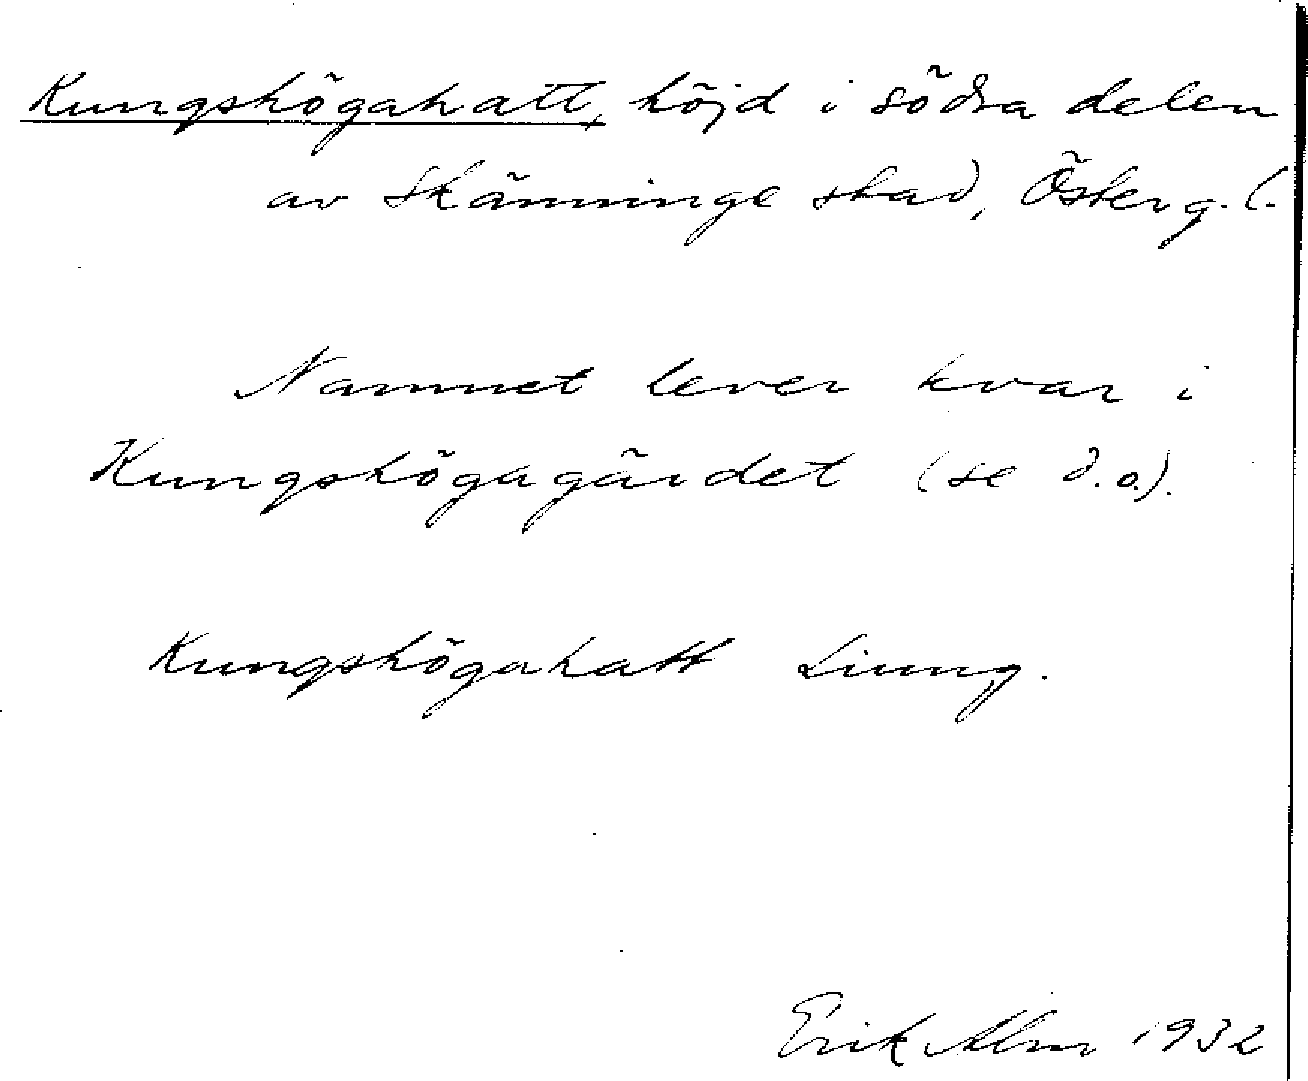 Kungshögahatt, höjd i södra delen
av Skänninge stad, Österg. l.
Namnet lever kvar i
Kungshögagärdet (se d.o.).
Kungshögahatt Liung.
Erik Alm 1932